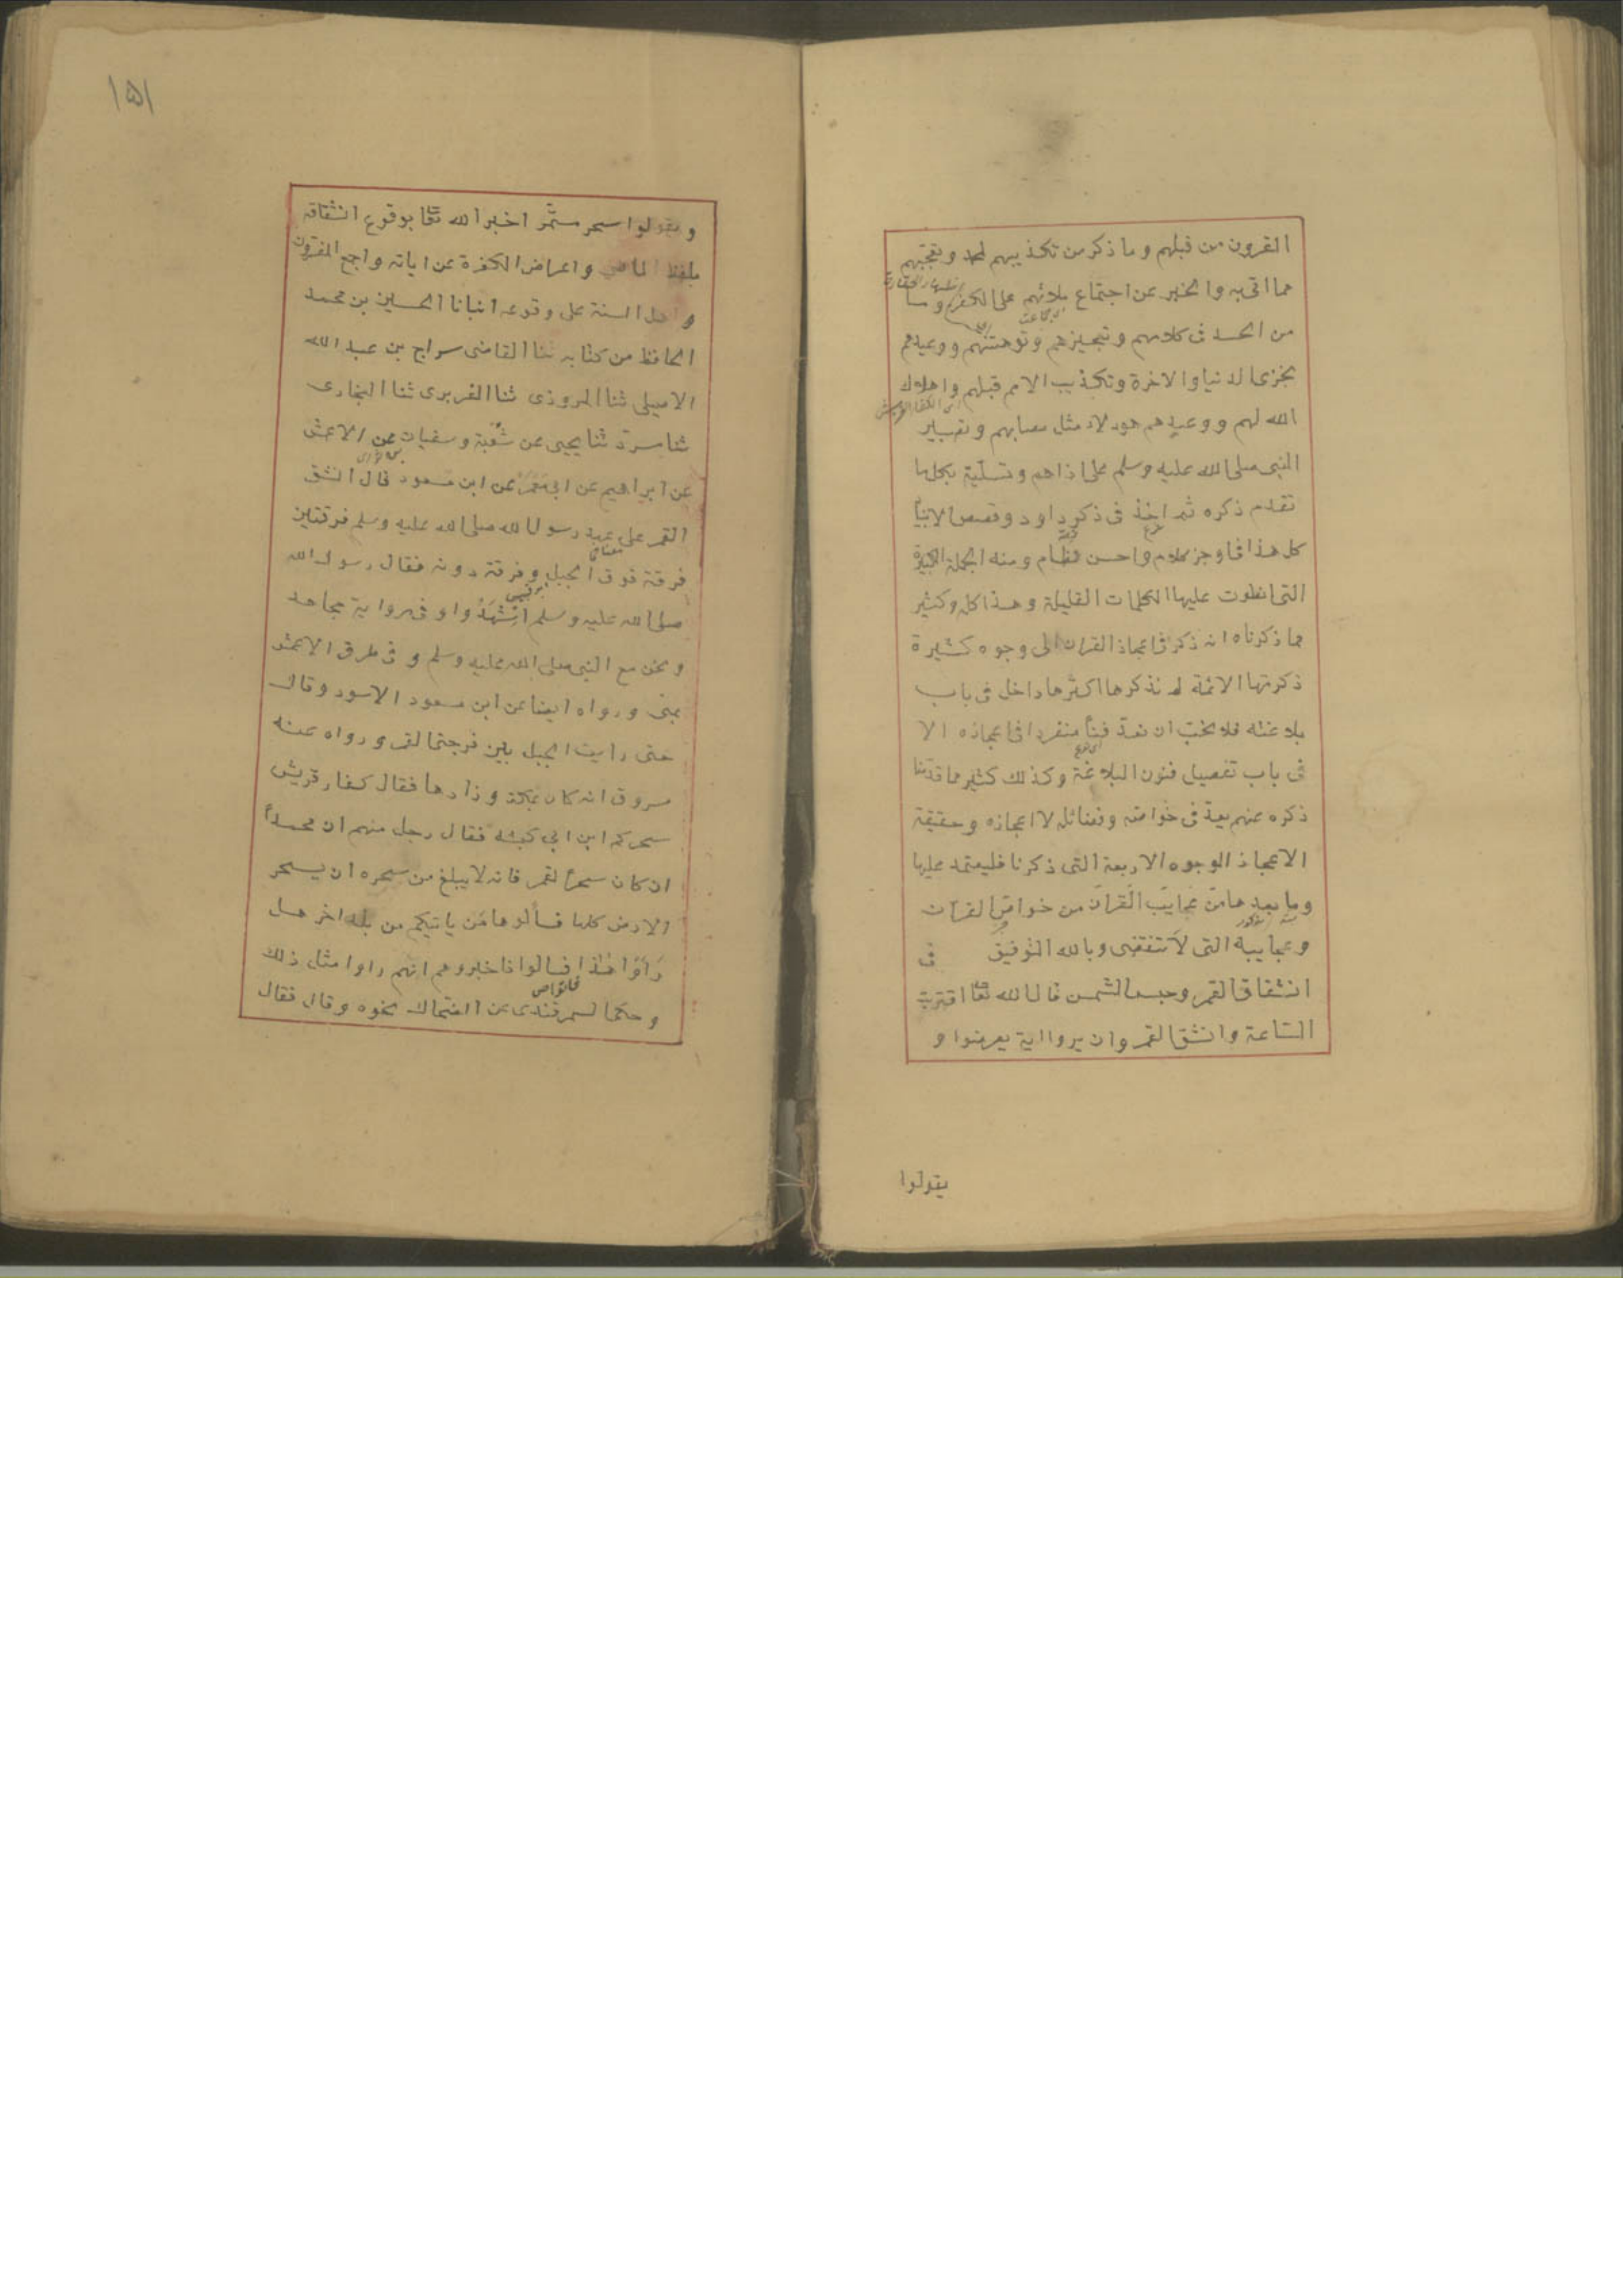 القرون من قبلهم وما ذكر من تكذيبهم لمحمد وتعجبهم
مما اتى به والخبر عن اجتماع ملائهم على الكفر وما
من الحسد فى كلامهم وتعجيزهم وتوهينهم ووعيدهم
بخزى الدنيا والاخرة وتكذيب الامم قبلهم واهلاك
الله لهم ووعيد هم هولاء مثل مصابهم وتصبير
النبى صلى الله عليه وسلم على اذاهم وتسلية بكل ما
تقدم ذكره ثم اخذ فى ذكر داود وقصص الانبيا
كل هذا فى اوجز كلام واحسن نظام ومنه الجملة الكثيرة
التى انطوت عليها الكلمات القليلة وهذا كله وكثير
مما ذكرناه انه ذكر فى اعجاز القران الى وجوه كثيرة
ذكرتها الائمة لم نذكرها اكثرها داخل فى باب
بلاغته فلا يجب ان نعد فنا منفردا فى اعجازه الا
فى باب تفصيل فنون البلاغة وكذلك كثير مما قدمنا
ذكره عنهم يعد فى خواصه وفضائله لا اعجازه وحقيقة
الاعجاز الوجوه الاربعة التى ذكرنا فليعتمد عليها
وما بعدها من عجايب القران من خواص القران
وعجايبه التى لا تنقضى وبالله التوفيق فى
انشقاق القمر وحبس الشمس قال الله تعا اقتربت
الساعة وانشق القمر وان يروا اية يعرضوا و
يقولوا
١٥١
ويقولوا سحر مستمر اخبر الله تعا بوقوع انشقاقه
بلفظ الماضى واعراض الكفرة عن اياته واجمع المفسرون
واهل السنة على وقوعه انبانا الحسين بن محمد
الحافظ من كتابه ثنا القاضى سراج بن عبد الله
الاصيلى ثنا المروزى ثنا الفربرى ثنا البخارى
ثنا مسدد ثنا يحيى عن شعبة وسفيان عن الاعمش
عن ابراهيم عن ابى معمر عن ابن مسعود قال انشق
القمر على عهد رسول الله صلى الله عليه وسلم فرقتين
فرقة فوق الجبل وفرقة دونه فقال رسول الله
صلى الله عليه وسلم اشهدوا وفى رواية مجاهد
ونحن مع النبى صلى الله عليه وسلم وفى طرق الاعمش
بمنى ورواه ايضا عن ابن مسعود الاسود وقال
حتى رايت الجبل بين فرجتى القمر ورواه عنه
مسروق انه كان بمكة وزاد ها فقال كفار قريش
سحركم ابن ابى كبشه فقال رجل منهم ان محمداً
ان كان سحر القمر فانه لا يبلغ من سحره ان يسحر
الارض كلها فسألوها من ياتيكم من بلد اخر هل
رأوا هذا فسالوا فاخبروهم انهم راوا مثل ذلك
وحكى السمرقندى عن الضحاك نحوه وقال فقال